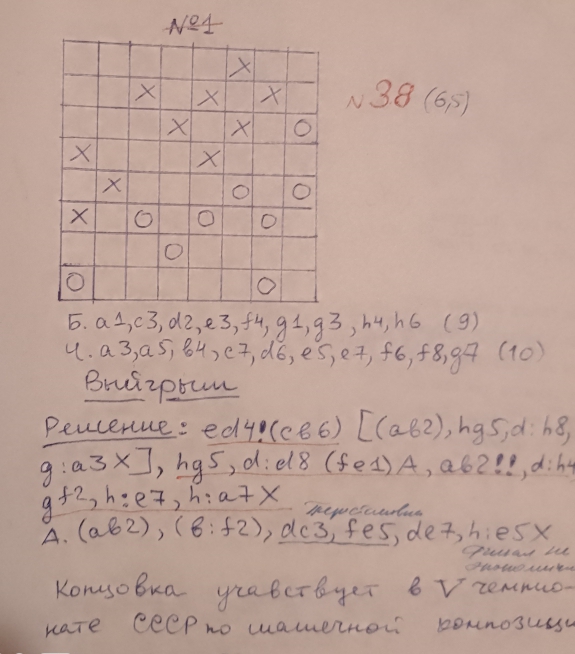 №1
N 38 (6,5)
Б. a1, c3, d2, e3, f4, g1, g3, h4, h6 (9)
Ч. a3, a5, b4, c7, d6, e5, e7, f6, f8, g7 (10)
Выйгрыш
Решение: ed4! (cb6) [(ab2), hg5, d:h8,
g:a3X], hg5, d:d8 (fe1) A, ab2!!, d:h4
gf2, h:e7, h:a7X
перестановка
A. (ab2), (b:f2), dc3, fe5, de7, h:e5X
финал не
экономичен
Концовка учавствует в V чемпио-
нате СССР по шашечной композиции